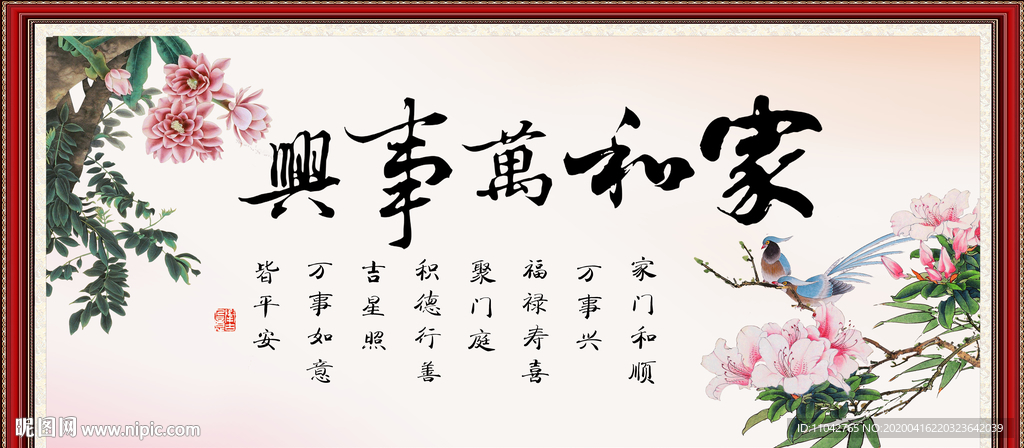 家和萬事興
家门和顺
万事兴
福禄寿喜
聚门庭
积德行善
吉星照
万事如意
皆平安
昵图网 www.nipic.com
ID:11042765 NO:20200416220323642039